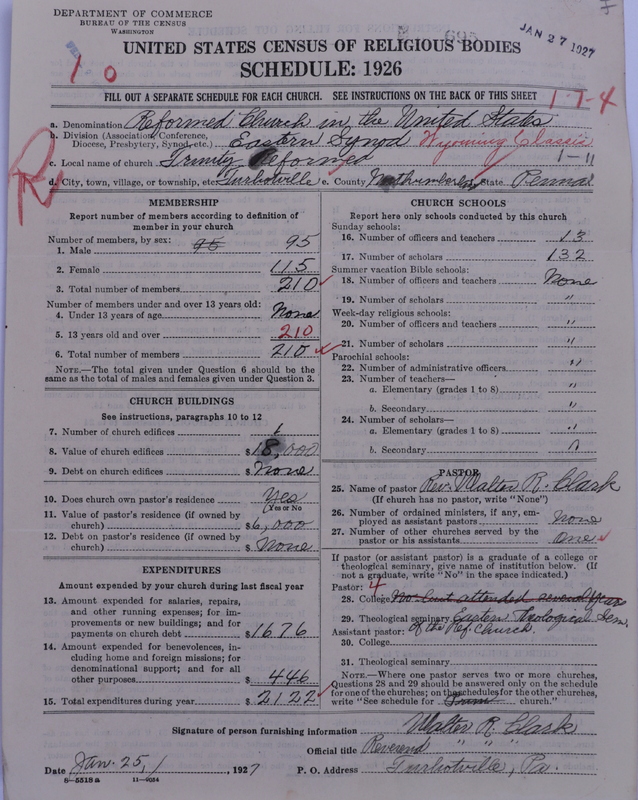 DEPARTMENT OF COMMERCE
BUREAU OF THE CENSUS
WASHINGTON
695
JAN 27 1927
UNITED STATES CENSUS OF RELIGIOUS BODIES
SCHEDULE: 1926
1 0
FILL OUT A SEPARATE SCHEDULE FOR EACH CHURCH. SEE INSTRUCTIONS ON THE BACK OF THIS SHEET
1 1-4
a. Denomination Reformed Church in the United States
b. Division (Association, Conference, Diocese, Presbytery, Synod, etc.) Eastern Synod Wyoming Classis
c. Local name of church Trinity Reformed 1-11
d. City, town, village, or township, etc. Turbotville e. County Northumberland State Penna
R
MEMBERSHIP
Report number of members according to definition of
member in your church
Number of members, by sex:
1. Male 95 95
2. Female 115
3. Total number of members 210
Number of members under and over 13 years old:
4. Under 13 years of age None
5. 13 years old and over 210
6. Total number of members 210
NOTE.—The total given under Question 6 should be
same as the total of males and females given under Question 3.
CHURCH BUILDINGS
See instructions, paragraphs 10 to 12
7. Number of church edifices 1
8. Value of church edifices $18,000
9. Debt on church edifices $None
10. Does church own pastor's residence Yes
(Yes or No)
11. Value of pastor's residence (if owned by
church) $6,000
12. Debt on pastor's residence (if owned by
church) $None
EXPENDITURES
Amount expended by your church during last fiscal year
13. Amount expended for salaries, repairs,
and other running expenses; for im-
provements or new buildings; and for
payments on church debt $1676
14. Amount expended for benevolences, in-
cluding home and foreign missions; for
denominational support; and for all
other purposes $446
15. Total expenditures during year $2122
CHURCH SCHOOLS
Report here only schools conducted by this church
Sunday schools:
16. Number of officers and teachers 13
17. Number of scholars 132
Summer vacation Bible schools:
18. Number of officers and teachers None
19. Number of scholars "
Week-day religious schools:
20. Number of officers and teachers "
21. Number of scholars "
Parochial schools:
22. Number of administrative officers "
23. Number of teachers—
a. Elementary (grades 1 to 8) "
b. Secondary "
24. Number of scholars—
a. Elementary (grades 1 to 8) "
b. Secondary "
PASTOR
25. Name of pastor Rev. Walter R. Clark
(If church has no pastor, write "None")
26. Number of ordained ministers, if any, em-
ployed as assistant pastors None
27. Number of other churches served by the
pastor or his assistants One
If pastor (or assistant pastor) is a graduate of a college or
theological seminary, give name of institution below. (If
not a graduate, write "No" in the space indicated.)
Pastor: 4
28. College No but attended several years
29. Theological seminary Eastern Theological Sem.
of the Ref. Church.
Assistant pastor:
30. College
31. Theological seminary
NOTE.—Where one pastor serves two or more churches,
Questions 28 and 29 should be answered only on the schedule
for one of the churches; on the schedules for the other churches,
write "See schedule for church."
Signature of person furnishing information Walter R. Clark
Official title Reverend " " "
Date Jan. 25, 1927 P. O. Address Turbotville, Pa.
8-5518a 11-9054